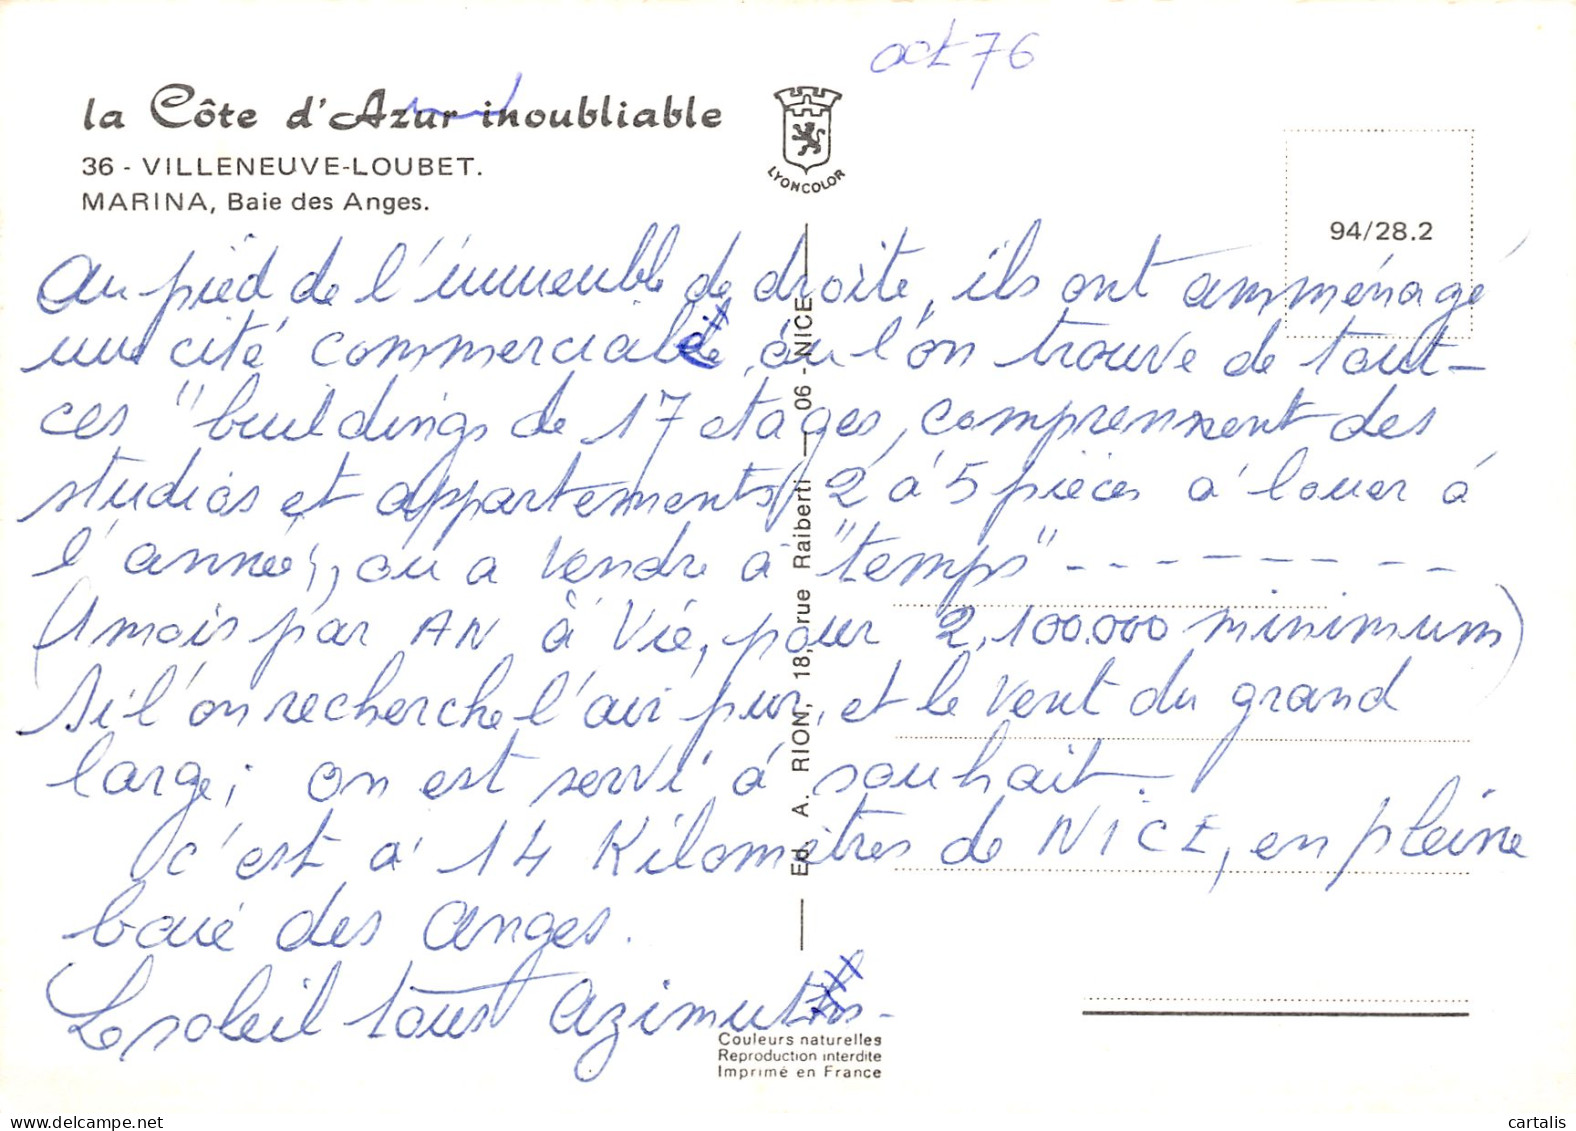 oct 76
la Côte d'Azur inoubliable
36 - VILLENEUVE-LOUBET.
MARINA, Baie des Anges.
LYONCOLOR
94/28.2
Au pied de l'immeuble de droite, ils ont amménagé
une cité commerciale, où l'on trouve de tout -
ces "buildings de 17 étages, comprennent des
studios et appartements, 2 à 5 pièces à louer à
l'année, ou a vendre à "temps" - - - - - - - -
(1 mois par AN à Vie, pour 2.100.000 minimum)
Si l'on recherche l'air pur, et le vent du grand
large; on est servi à souhait.
C'est à 14 Kilomètres de NICE, en pleine
baie des anges.
Le soleil tous azimuts -
Ed. A. RION, 18, rue Raiberti - 06 - NICE
Couleurs naturelles
Reproduction interdite
Imprimé en France
www.delcampe.net
cartalis